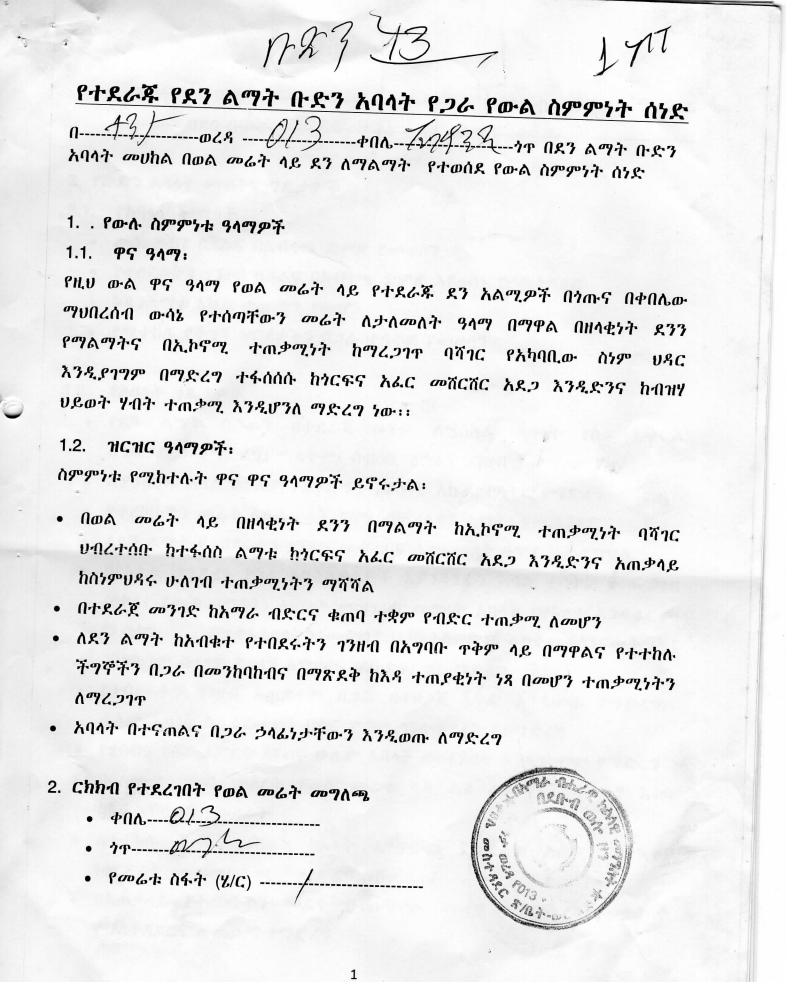 ቡድን 43
የተደራጁ የደን ልማት ቡድን አባላት የጋራ የውል ስምምነት ሰነድ
በ--------------------ወረዳ --------013-----------ቀበሌ--------------------ጎጥ በደን ልማት ቡድን
አባላት መሀከል በወል መሬት ላይ ደን ለማልማት የተወሰደ የውል ስምምነት ሰነድ
1. . የውሉ ስምምነቱ ዓላማዎች
1.1. ዋና ዓላማ፡
የዚህ ውል ዋና ዓላማ የወል መሬት ላይ የተደራጁ ደን አልሚዎች በጎጡና በቀበሌው
ማህበረሰብ ውሳኔ የተሰጣቸውን መሬት ለታለመለት ዓላማ በማዋል በዘላቂነት ደንን
የማልማትና በኢኮኖሚ ተጠቃሚነት ከማረጋገጥ ባሻገር የአካባቢው ስነም ህዳር
እንዲያገግም በማድረግ ተፋሰሰሱ ከጎርፍና አፈር መሸርሸር አደጋ እንዲድንና ከብዝሃ
ህይወት ሃብት ተጠቃሚ እንዲሆንለ ማድረግ ነው፡፡
1.2. ዝርዝር ዓላማዎች፡
ስምምነቱ የሚከተሉት ዋና ዋና ዓላማዎች ይኖሩታል፡
• በወል መሬት ላይ በዘላቂነት ደንን በማልማት ከኢኮኖሚ ተጠቃሚነት ባሻገር
ህብረተሰቡ ከተፋሰስ ልማቱ ከጎርፍና አፈር መሸርሸር አደጋ እንዲድንና አጠቃላይ
ከስነምህዳሩ ሁለገብ ተጠቃሚነትን ማሻሻል
• በተደራጀ መንገድ ከአማራ ብድርና ቁጠባ ተቋም የብድር ተጠቃሚ ለመሆን
• ለደን ልማት ከአብቁተ የተበደሩትን ገንዘብ በአግባቡ ጥቅም ላይ በማዋልና የተተከሉ
ችግኞችን በጋራ በመንከባከብና በማጽደቅ ከእዳ ተጠያቂነት ነጻ በመሆን ተጠቃሚነትን
ለማረጋገጥ
• አባላት በተናጠልና በጋራ ኃላፊነታቸውን እንዲወጡ ለማድረግ
2. ርክክብ የተደረገበት የወል መሬት መግለጫ
• ቀበሌ----013----------------------
• ጎጥ------------------------------
• የመሬቱ ስፋት (ሄ/ር) ---------------------------
1